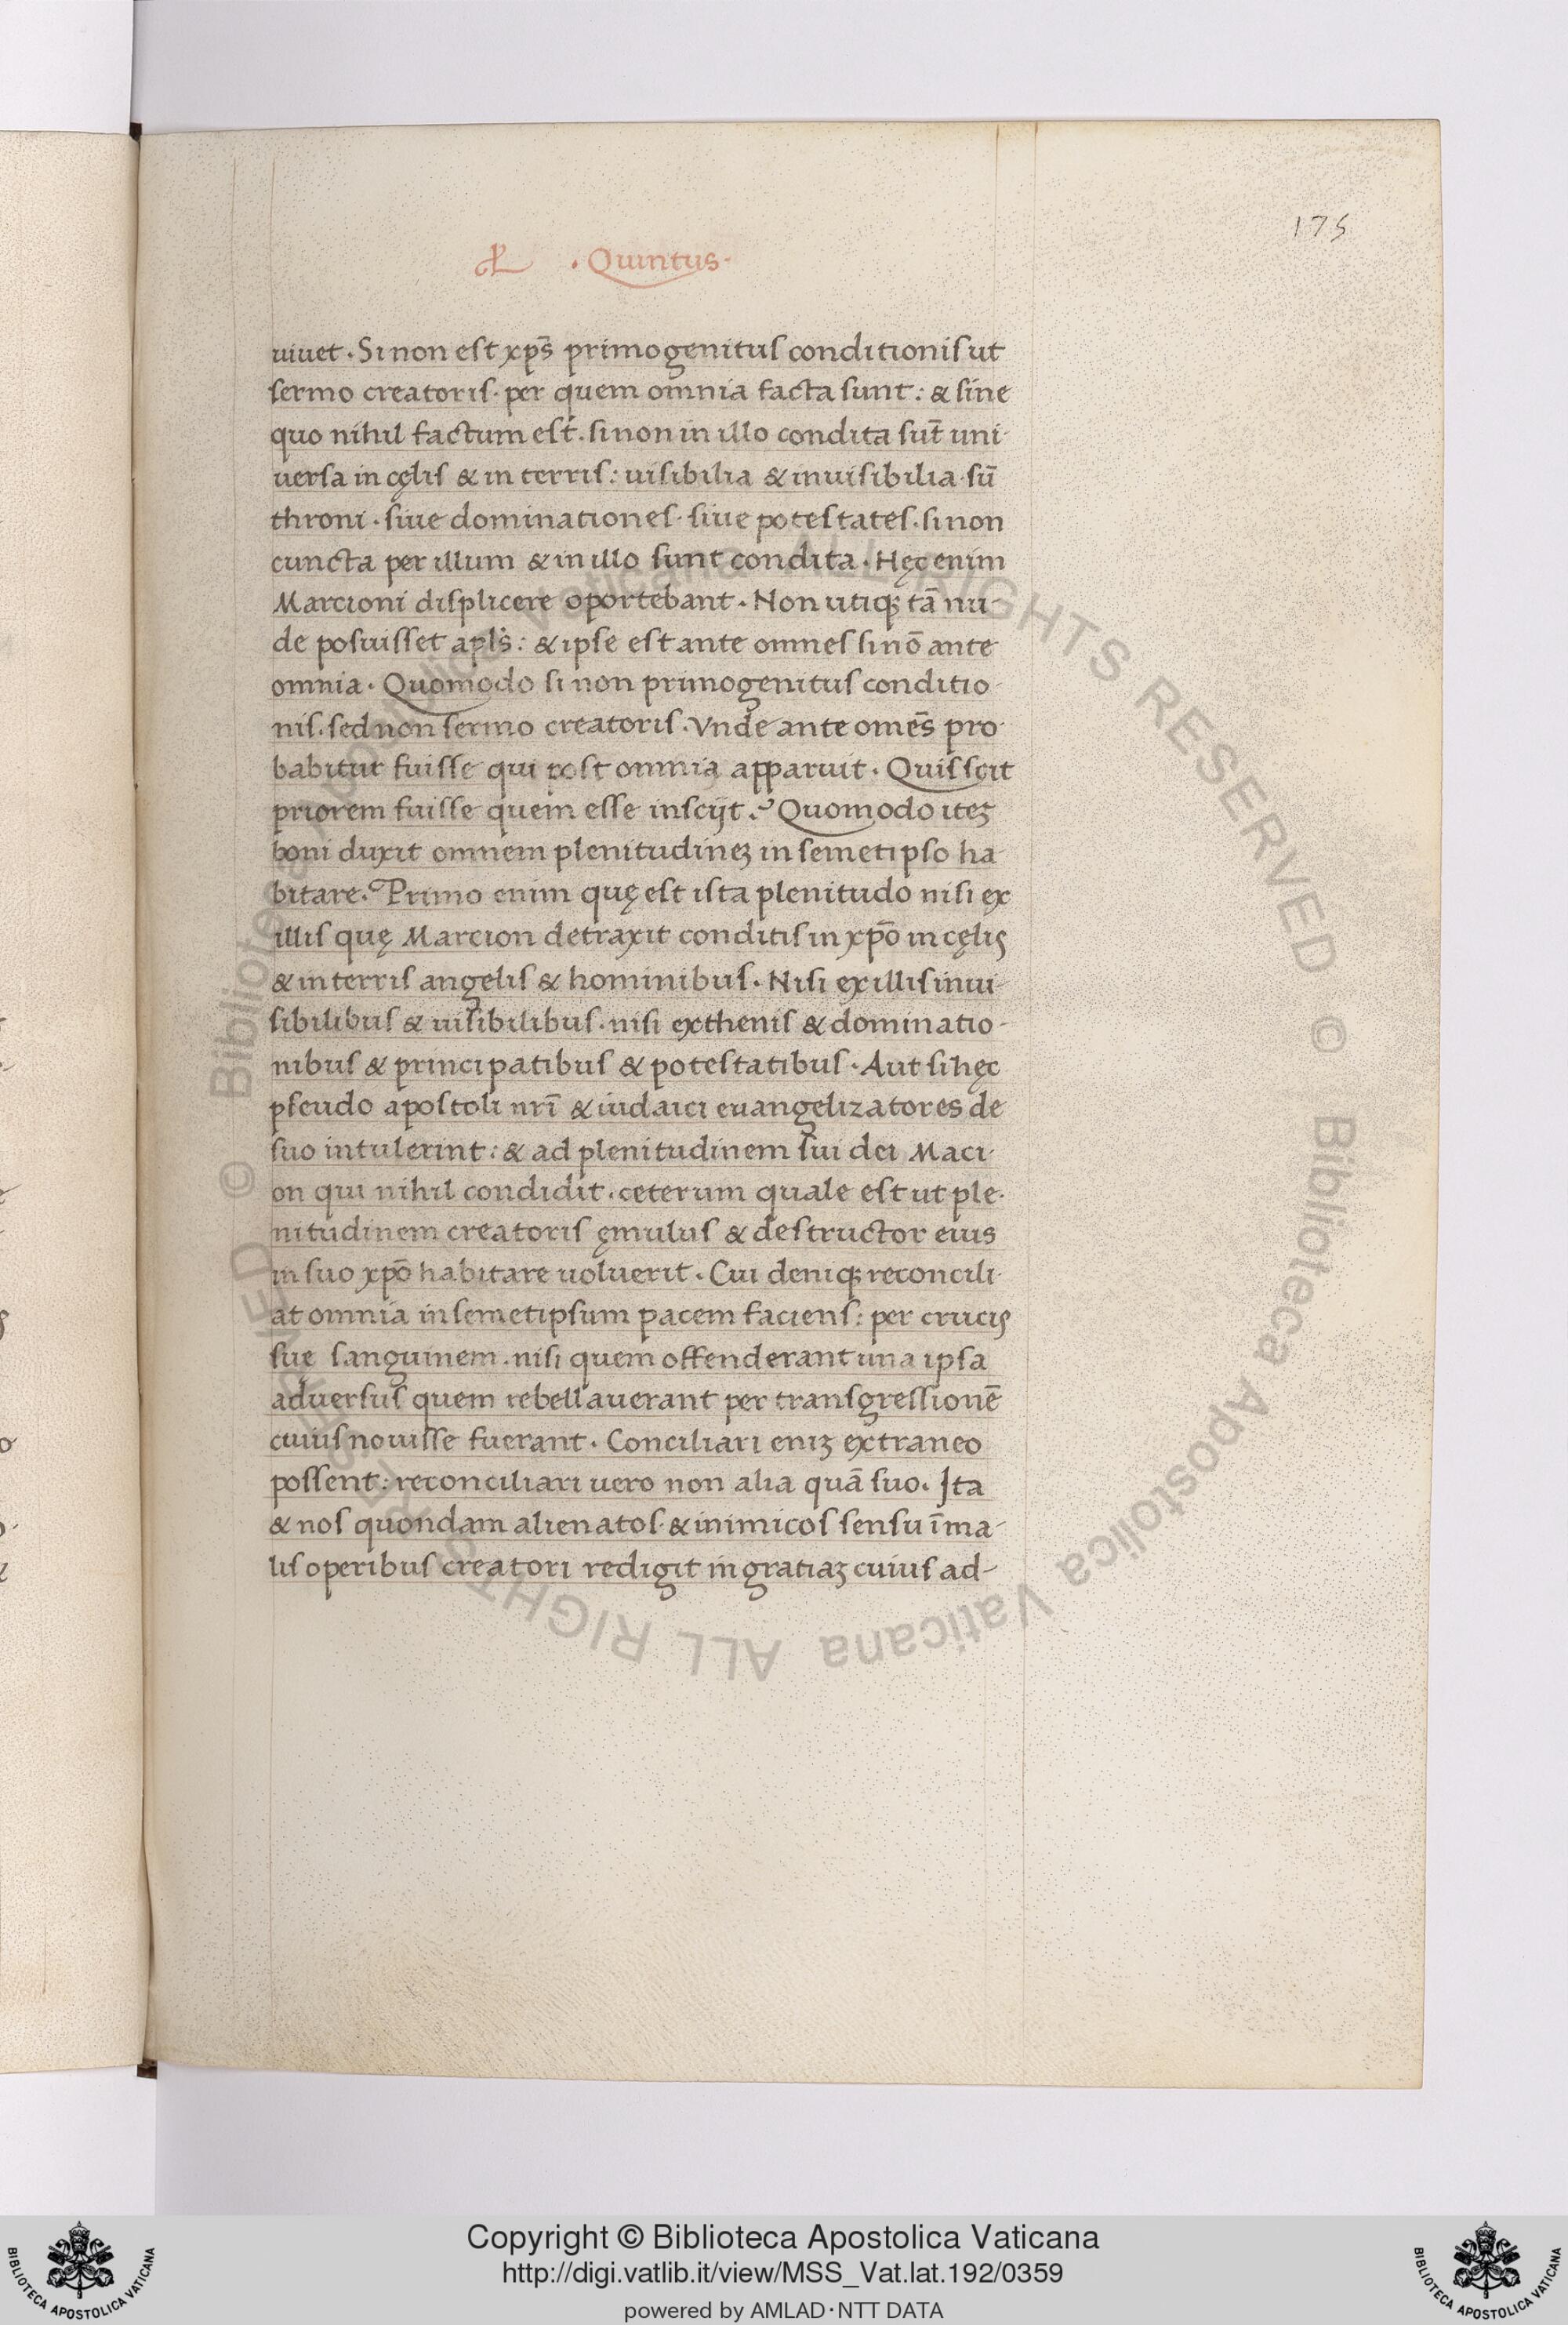 175
· Quintus ·
uiuet · Si non est xp̄s primogenitus conditionis ut
sermo creatoris · per quem omnia facta sunt : & sine
quo nihil factum est · si non in illo condita sūt uni-
uersa in cęlis & in terris : uisibilia & inuisibilia · siū
throni · siue dominationes · siue potestates · si non
cuncta per illum & in illo sunt condita · Hęc enim
Marcioni displicere oportebant · Non utiqꝫ tā nu-
de posuisset apl̄s : & ipse est ante omnes si nō ante
omnia · Quomodo si non primogenitus conditio-
nis · sed non sermo creatoris · Vnde ante omēs pro-
babitur fuisse qui post omnia apparuit · Quis scit
priorem fuisse quem esse insciit ? Quomodo iteꝫ
boni duxit omnem plenitudineꝫ in semetipso ha-
bitare ? Primo enim quę est ista plenitudo nisi ex
illis quę Marcion detraxit conditis in xp̄o in cęlis
& in terris angelis & hominibus · Nisi ex illis inui-
sibilibus & uisibilibus · nisi ex thenis & dominatio-
nibus & principatibus & potestatibus · Aut si hęc
pseudo apostoli nr̄i & iudaici euangelizatores de
suo intulerint : & ad plenitudinem sui dei Maci-
on qui nihil condidit · ceterum quale est ut ple-
nitudinem creatoris ęmulus & destructor eius
in suo xp̄o habitare uoluerit · Cui deniqꝫ reconcili-
at omnia in semetipsum pacem faciens : per crucis
sue sanguinem · nisi quem offenderant una ipsa
aduersus quem rebellauerant per transgressionē
cuius nouisse fuerant · Conciliari eniꝫ extraneo
possent : reconciliari uero non alia quā suo · Ita
& nos quondam alienatos · & inimicos sensu ī ma-
lis operibus creatori redigit in gratiaꝫ cuius ad-
© Biblioteca Apostolica Vaticana ALL RIGHTS RESERVED © Biblioteca Apostolica Vaticana ALL RIGHTS RESERVED
Copyright © Biblioteca Apostolica Vaticana
http://digi.vatlib.it/view/MSS_Vat.lat.192/0359
powered by AMLAD·NTT DATA
BIBLIOTECA APOSTOLICA VATICANA
BIBLIOTECA APOSTOLICA VATICANA